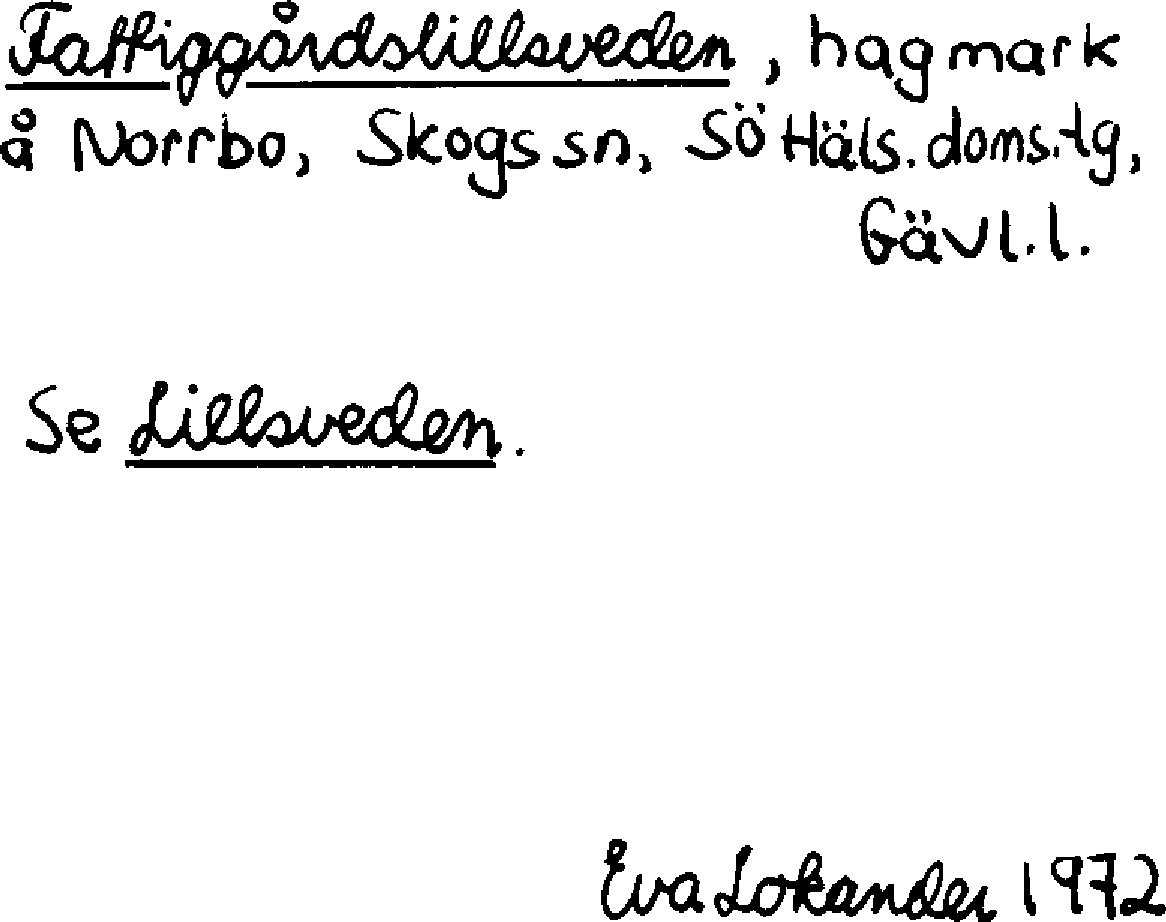 Fattiggårdslillsveden, hagmark
å Norrbo, Skogs sn, Sö Häls. doms.tg,
Gävl.l.
Se Lillsveden.
Eva Lokander 1972